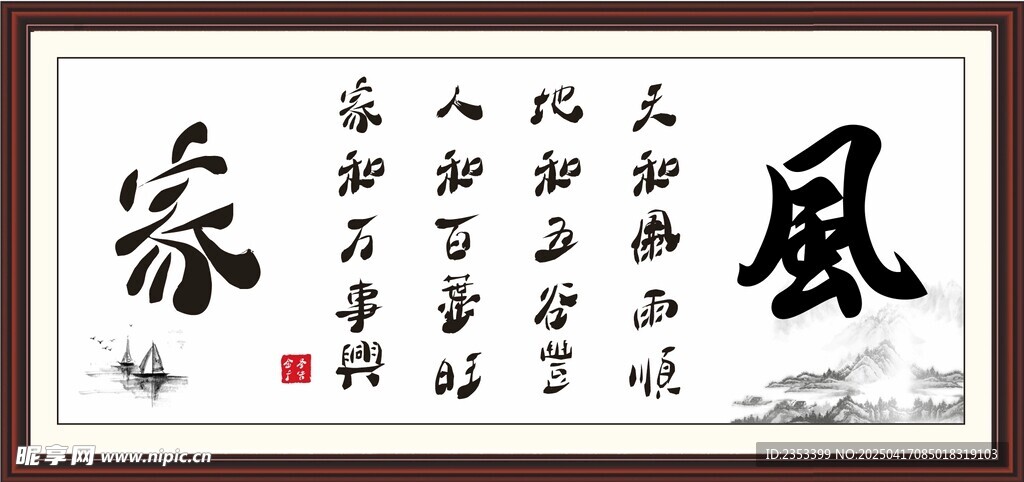 風
天和風雨順
地和五谷豐
人和百業旺
家和万事興
家
昵享网 www.nipic.cn
ID:2353399 NO:20250417085018319103